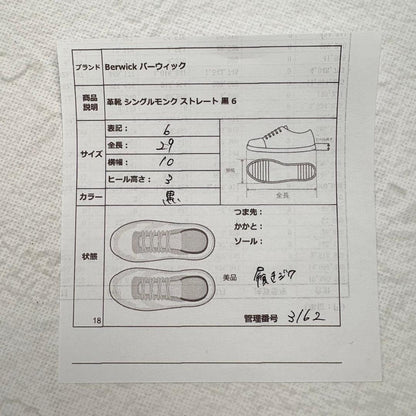 ブランド Berwick バーウィック
商品説明 革靴 シングルモンク ストレート 黒 6
サイズ
表記： 6
全長： 29
横幅： 10
ヒール高さ： 3
全長
カラー 黒
状態
つま先：
かかと：
ソール：
美品 履きジワ
18
管理番号 3162